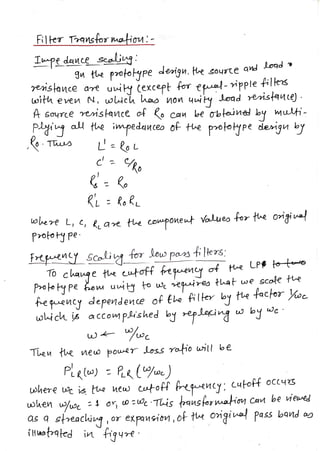 Filter Transformation:-
Impedance scaling:
In the prototype design, the source and load
resistance are unity (except for equal-ripple filters
with even N, which has non unity load resistance).
A source resistance of R₀ can be obtained by multi-
plying all the impedances of the prototype design by
R₀. Thus
L' = R₀L
C' = C/R₀
R's = R₀
R'L = R₀RL
where L, C, RL are the component values for the original
prototype.
Frequency scaling for low pass filters:
To change the cutoff frequency of the LPF
Prototype from unity to ωc requires that we scale the
frequency dependence of the filter by the factor 1/ωc
which is accomplished by replacing ω by ωc.
ω ← ω/ωc
Then the new power loss ratio will be
P'LR(ω) = PLR(ω/ωc)
where ωc is the new cutoff frequency; cutoff occurs
when ω/ωc = 1 or, ω=ωc. This transformation can be viewed
as a streaching, or expansion, of the original pass band as
illustrated in figure.